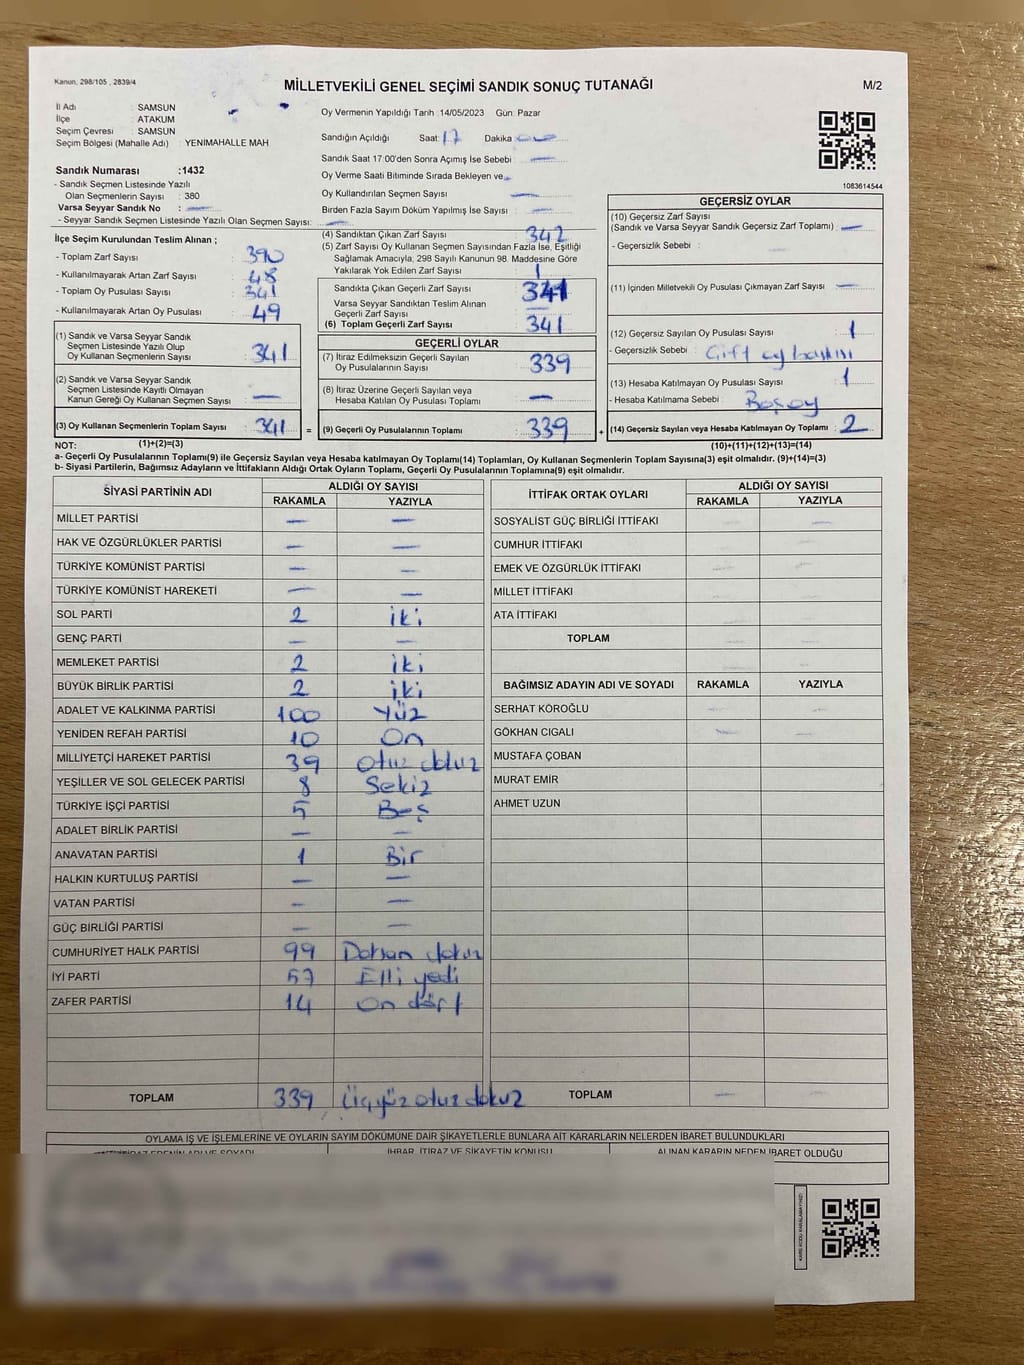 Kanun, 298/105 , 2839/4
MİLLETVEKİLİ GENEL SEÇİMİ SANDIK SONUÇ TUTANAĞI
M/2
İl Adı : SAMSUN
İlçe : ATAKUM
Seçim Çevresi : SAMSUN
Seçim Bölgesi (Mahalle Adı) : YENIMAHALLE MAH
Sandık Numarası :1432
- Sandık Seçmen Listesinde Yazılı
Olan Seçmenlerin Sayısı : 380
Varsa Seyyar Sandık No : —
- Seyyar Sandık Seçmen Listesinde Yazılı Olan Seçmen Sayısı: —
Oy Vermenin Yapıldığı Tarih :14/05/2023 Gün: Pazar
Sandığın Açıldığı Saat: 17 Dakika 00
Sandık Saat 17:00'den Sonra Açımış İse Sebebi : —
Oy Verme Saati Bitiminde Sırada Bekleyen ve
Oy Kullandırılan Seçmen Sayısı —
Birden Fazla Sayım Döküm Yapılmış İse Sayısı : —
1083614544
İlçe Seçim Kurulundan Teslim Alınan ;
- Toplam Zarf Sayısı : 390
- Kullanılmayarak Artan Zarf Sayısı : 48
- Toplam Oy Pusulası Sayısı : 341
- Kullanılmayarak Artan Oy Pusulası : 49
(1) Sandık ve Varsa Seyyar Sandık
Seçmen Listesinde Yazılı Olup
Oy Kullanan Seçmenlerin Sayısı : 341
(2) Sandık ve Varsa Seyyar Sandık
Seçmen Listesinde Kayıtlı Olmayan
Kanun Gereği Oy Kullanan Seçmen Sayısı : —
(3) Oy Kullanan Seçmenlerin Toplam Sayısı : 341 =
(4) Sandıktan Çıkan Zarf Sayısı : 342
(5) Zarf Sayısı Oy Kullanan Seçmen Sayısından Fazla İse, Eşitliği
Sağlamak Amacıyla, 298 Sayılı Kanunun 98. Maddesine Göre
Yakılarak Yok Edilen Zarf Sayısı : 1
Sandıkta Çıkan Geçerli Zarf Sayısı : 341
Varsa Seyyar Sandıktan Teslim Alınan
Geçerli Zarf Sayısı : —
(6) Toplam Geçerli Zarf Sayısı : 341
GEÇERLİ OYLAR
(7) İtiraz Edilmeksizin Geçerli Sayılan
Oy Pusulalarının Sayısı : 339
(8) İtiraz Üzerine Geçerli Sayılan veya
Hesaba Katılan Oy Pusulası Toplamı : —
(9) Geçerli Oy Pusulalarının Toplamı : 339 +
GEÇERSİZ OYLAR
(10) Geçersiz Zarf Sayısı
(Sandık ve Varsa Seyyar Sandık Geçersiz Zarf Toplamı) : —
- Geçersizlik Sebebi : —
(11) İçinden Milletvekili Oy Pusulası Çıkmayan Zarf Sayısı : —
(12) Geçersiz Sayılan Oy Pusulası Sayısı : 1
- Geçersizlik Sebebi : Çift oy baskısı
(13) Hesaba Katılmayan Oy Pusulası Sayısı : 1
- Hesaba Katılmama Sebebi : Boş oy
(14) Geçersiz Sayılan veya Hesaba Katılmayan Oy Toplamı : 2
NOT: (1)+(2)=(3) (10)+(11)+(12)+(13)=(14)
a- Geçerli Oy Pusulalarının Toplamı(9) ile Geçersiz Sayılan veya hesaba katılmayan Oy Toplamı(14) Toplamları, Oy Kullanan Seçmenlerin Toplam Sayısına(3) eşit olmalıdır. (9)+(14)=(3)
b- Siyasi Partilerin, Bağımsız Adayların ve İttifakların Aldığı Ortak Oyların Toplamı, Geçerli Oy Pusulalarının Toplamına(9) eşit olmalıdır.
SİYASİ PARTİNİN ADI ALDIĞI OY SAYISI
RAKAMLA YAZIYLA
MİLLET PARTİSİ — —
HAK VE ÖZGÜRLÜKLER PARTİSİ — —
TÜRKİYE KOMÜNİST PARTİSİ — —
TÜRKİYE KOMÜNİST HAREKETİ — —
SOL PARTİ 2 iki
GENÇ PARTİ — —
MEMLEKET PARTİSİ 2 iki
BÜYÜK BİRLİK PARTİSİ 2 iki
ADALET VE KALKINMA PARTİSİ 100 Yüz
YENİDEN REFAH PARTİSİ 10 On
MİLLİYETÇİ HAREKET PARTİSİ 39 otuz dokuz
YEŞİLLER VE SOL GELECEK PARTİSİ 8 Sekiz
TÜRKİYE İŞÇİ PARTİSİ 5 Beş
ADALET BİRLİK PARTİSİ — —
ANAVATAN PARTİSİ 1 Bir
HALKIN KURTULUŞ PARTİSİ — —
VATAN PARTİSİ — —
GÜÇ BİRLİĞİ PARTİSİ — —
CUMHURİYET HALK PARTİSİ 99 Doksan dokuz
İYİ PARTİ 57 Elli yedi
ZAFER PARTİSİ 14 On dört
TOPLAM 339 üçyüz otuz dokuz
İTTİFAK ORTAK OYLARI ALDIĞI OY SAYISI
RAKAMLA YAZIYLA
SOSYALİST GÜÇ BİRLİĞİ İTTİFAKI — —
CUMHUR İTTİFAKI — —
EMEK VE ÖZGÜRLÜK İTTİFAKI — —
MİLLET İTTİFAKI — —
ATA İTTİFAKI — —
TOPLAM — —
BAĞIMSIZ ADAYIN ADI VE SOYADI RAKAMLA YAZIYLA
SERHAT KÖROĞLU — —
GÖKHAN CIGALI — —
MUSTAFA ÇOBAN
MURAT EMİR
AHMET UZUN
TOPLAM — —
OYLAMA İŞ VE İŞLEMLERİNE VE OYLARIN SAYIM DÖKÜMÜNE DAİR ŞİKAYETLERLE BUNLARA AİT KARARLARIN NELERDEN İBARET BULUNDUKLARI
İHBAR, İTİRAZ VE ŞİKAYETİN KONUSU
ALINAN KARARIN NEDEN İBARET OLDUĞU
KARE KODU KARALAMAYINIZ!